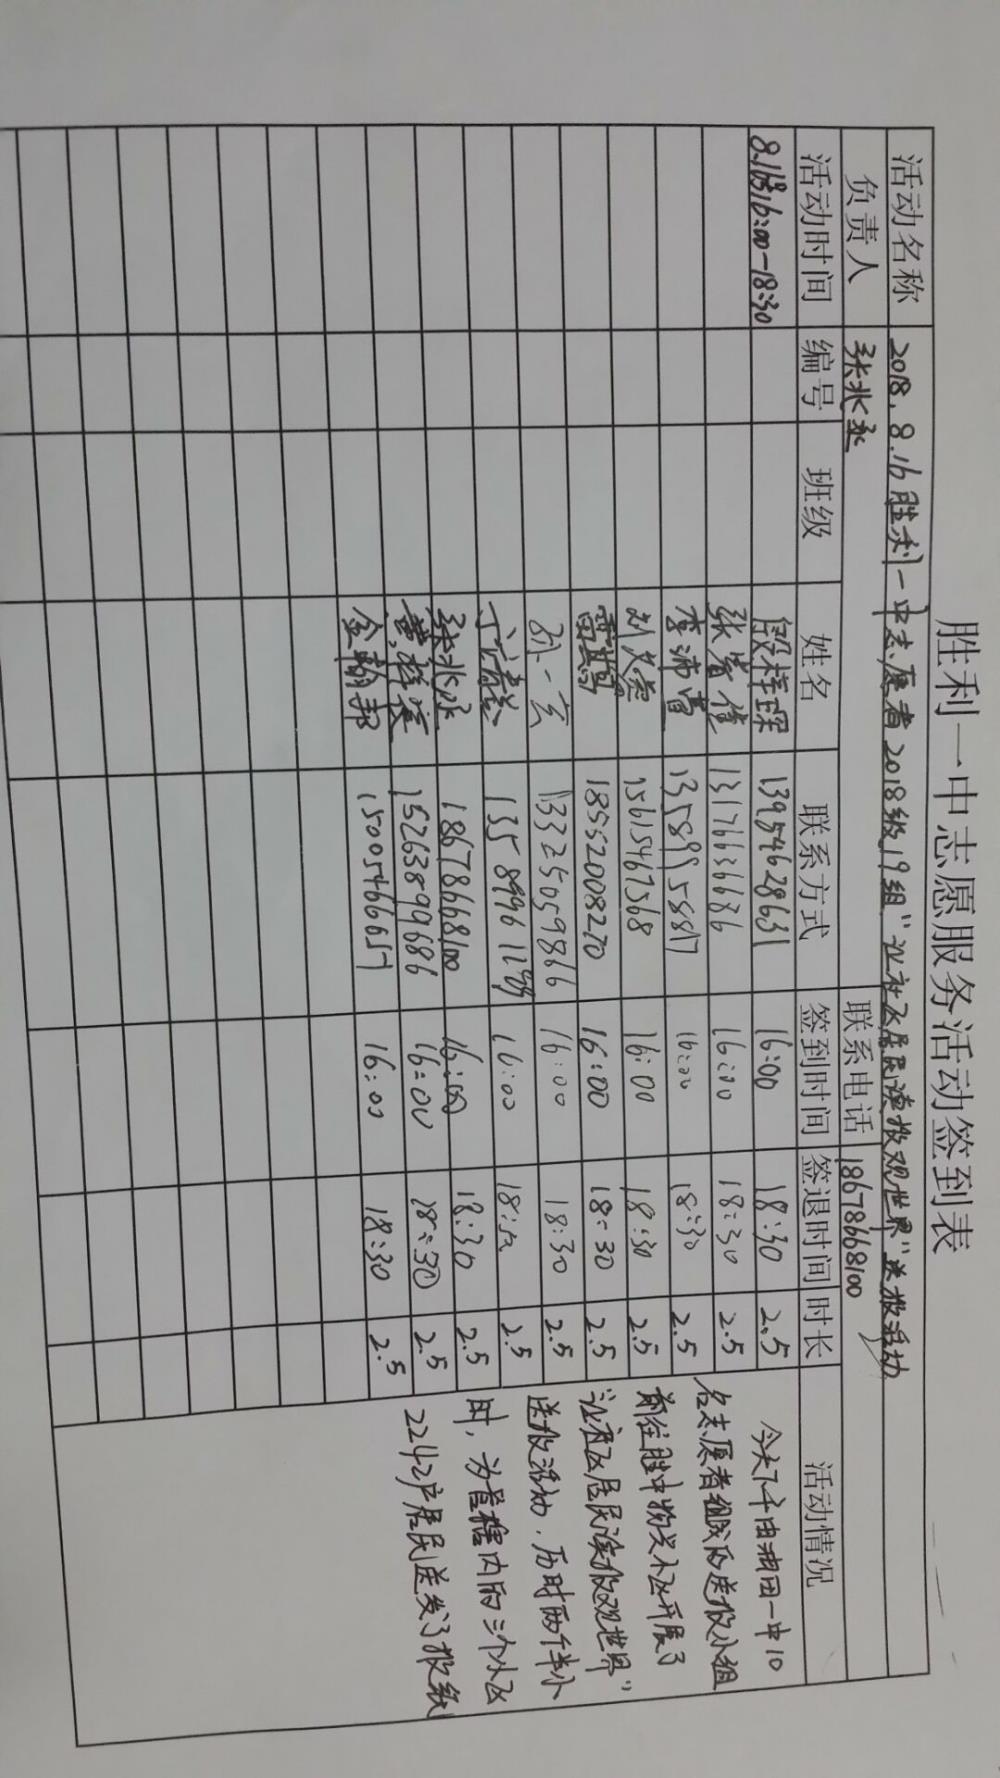 胜利一中志愿服务活动签到表
活动名称 2018.8.16胜利一中志愿者2018级19组“让社区居民读报观世界”送报活动
负责人 张兆永 联系电话 18678668100
活动时间 编号 班级 姓名 联系方式 签到时间 签退时间 时长 活动情况
8.16号16:00-18:30 段梓琛 13954628631 16:00 18:30 2.5
张睿倢 13176636686 16:00 18:30 2.5
李沛 13589958817 16:00 18:30 2.5
刘 15615467568 16:00 18:30 2.5
18552008270 16:00 18:30 2.5
孙一 13325059866 16:00 18:30 2.5
丁 135 8996 16:00 18:30 2.5
张兆永 18678668100 16:00 18:30 2.5
黄 15263899686 16:00 18:30 2.5
金翰邦 15005466657 16:00 18:30 2.5
今天下午由油田一中10
名志愿者组成的送报小组
前往胜中物业小区开展了
“让社区居民读报观世界”
送报活动，历时两个半小
时，为管辖内的三个小区
2242户居民送发了报纸